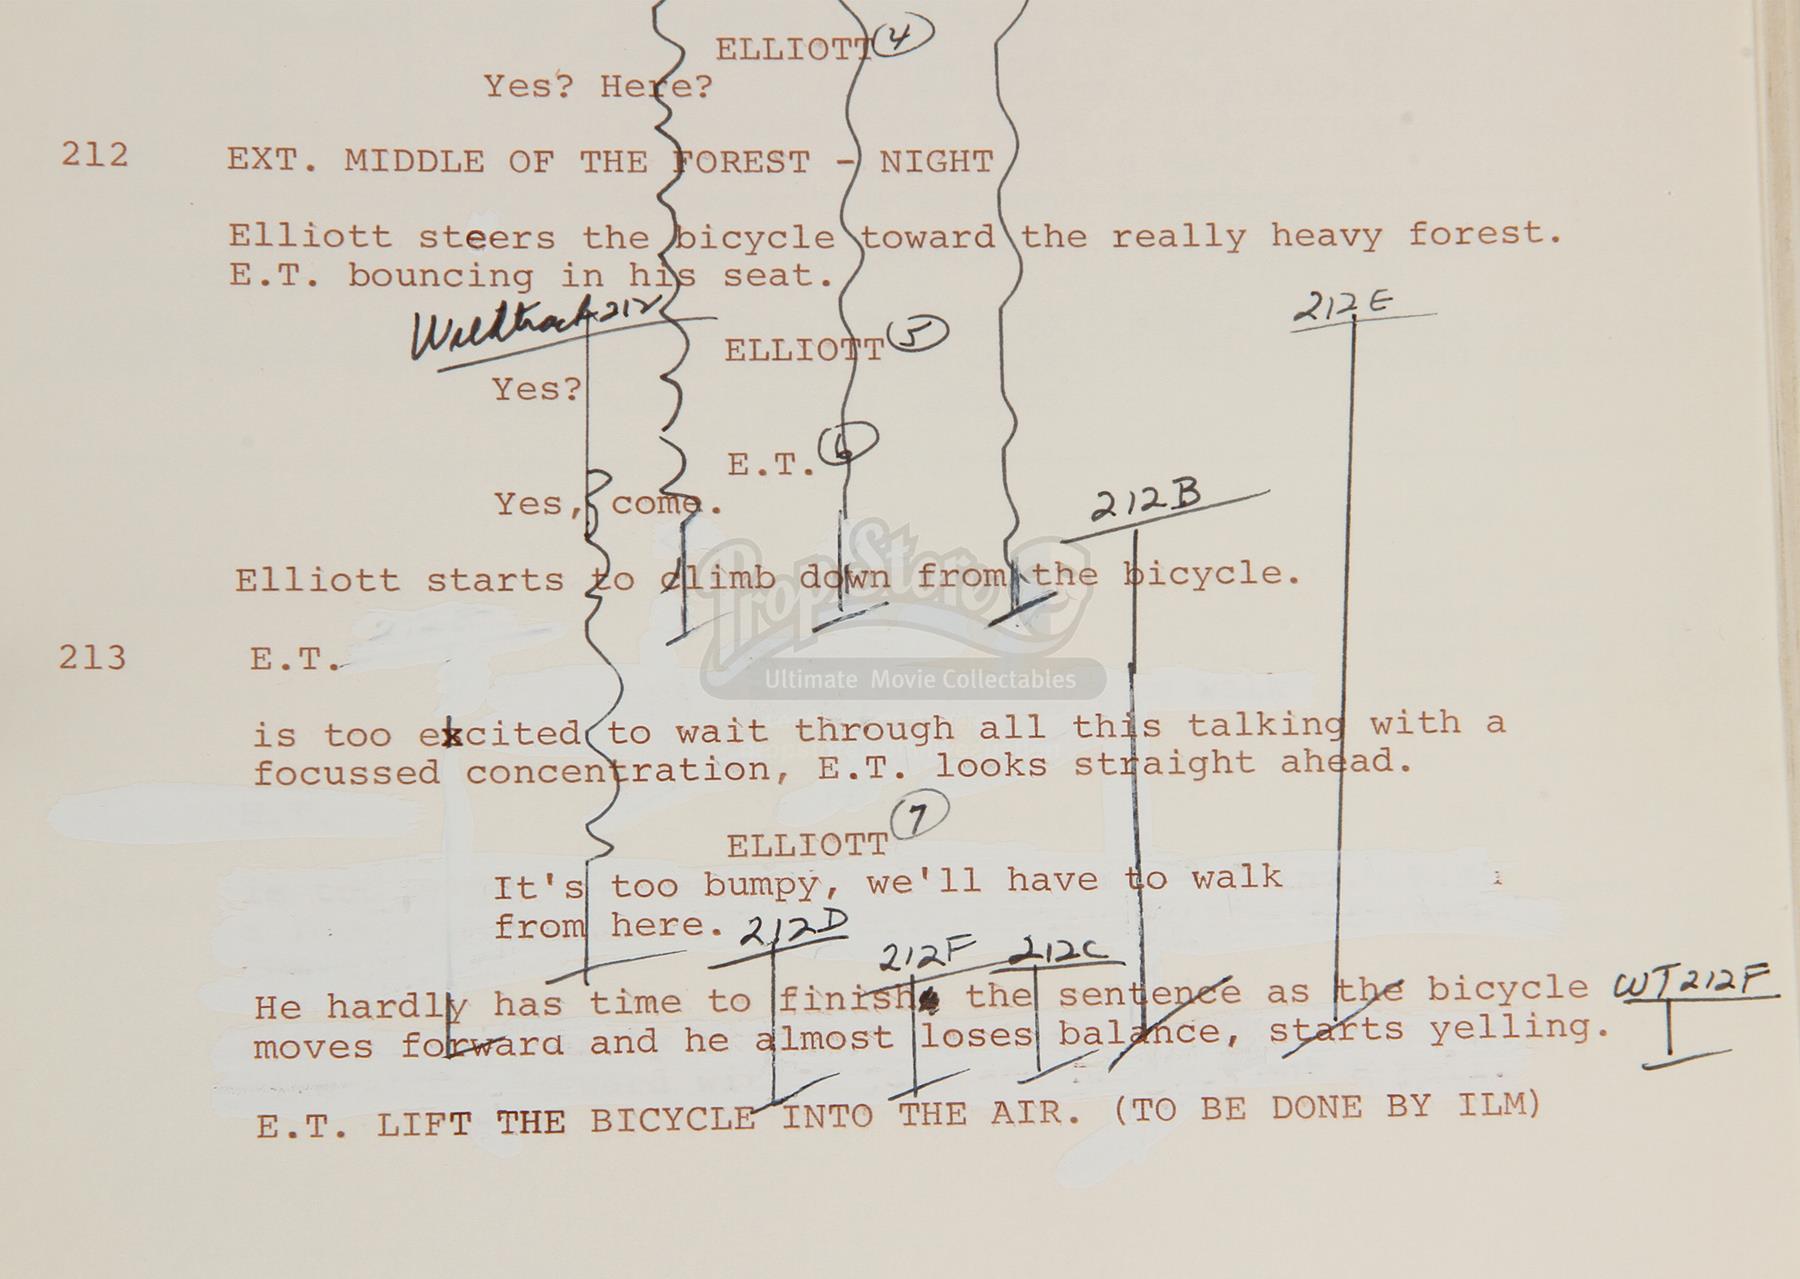 ELLIOTT 4
Yes? Here?
212 EXT. MIDDLE OF THE FOREST - NIGHT
Elliott steers the bicycle toward the really heavy forest.
E.T. bouncing in his seat.
Wildtrack 212
212E
ELLIOTT 5
Yes?
E.T. 6
Yes, come.
212B
Elliott starts to climb down from the bicycle.
PropStore
Ultimate Movie Collectables
213 E.T.
is too excited to wait through all this talking with a
focussed concentration, E.T. looks straight ahead.
ELLIOTT 7
It's too bumpy, we'll have to walk
from here.
212D
212F
212C
He hardly has time to finish the sentence as the bicycle
WT212F
moves forward and he almost loses balance, starts yelling.
E.T. LIFT THE BICYCLE INTO THE AIR. (TO BE DONE BY ILM)